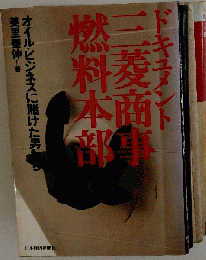 ドキュメント
三菱商事
燃料本部
オイル・ビジネスに賭けた男たち
美里泰伸
著